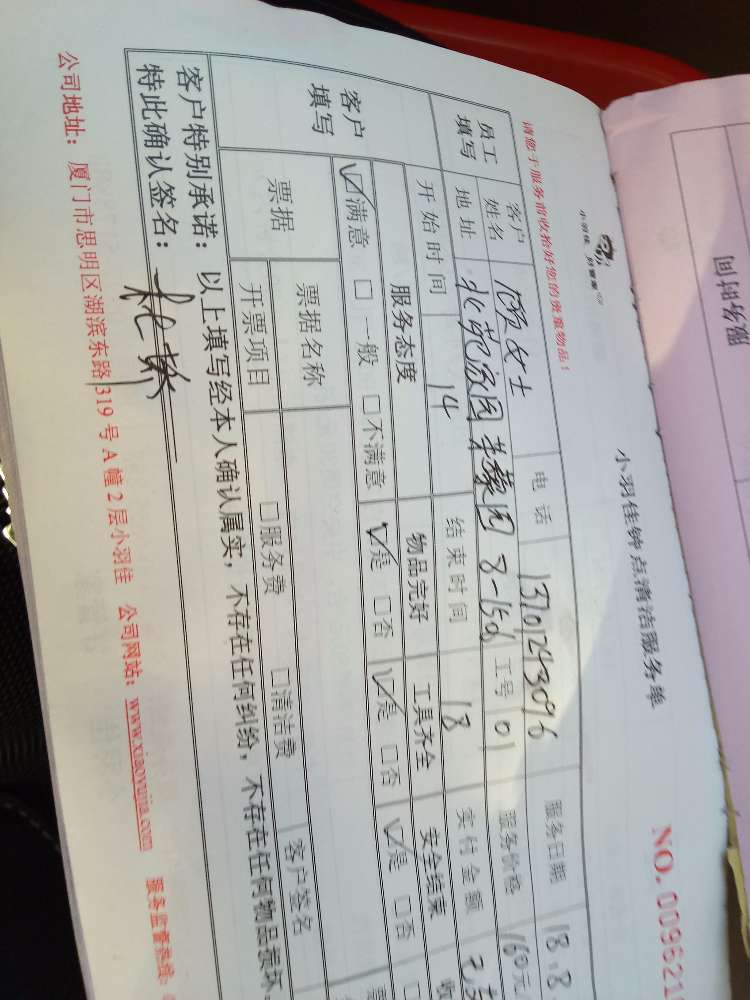 小羽佳钟点清洁服务单
NO. 009621
请您于服务前收拾好您的贵重物品!
员工填写 客户姓名 顾女士 电话 13701243096 服务日期 18.8
地址 北苑家园 8-15 工号 01 服务价格 160元
开始时间 14 结束时间 18 实付金额
客户填写 服务态度 物品完好 工具齐全 安全结束 收
☑满意 □一般 □不满意 ☑是 □否 ☑是 □否 ☑是 □否
票据 票据名称 客户签名 票
开票项目 □服务费 □清洁费
客户特别承诺:以上填写经本人确认属实,不存在任何纠纷,不存在任何物品损坏,
特此确认签名:
公司地址:厦门市思明区湖滨东路319号A幢2层小羽佳 公司网站:www.xiaoyujia.com 服务监督热线:
服务时间